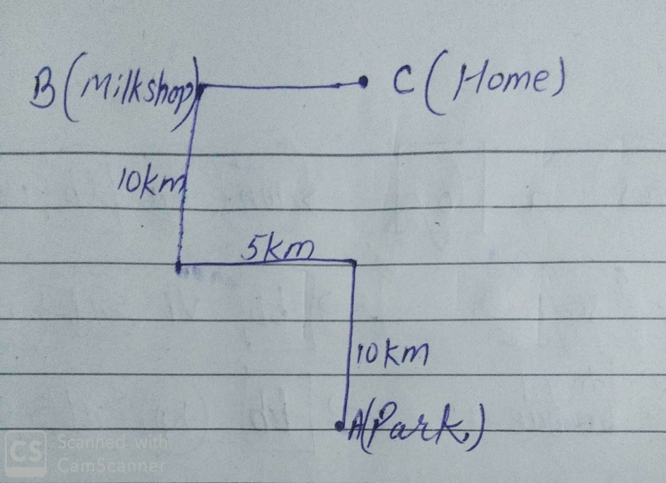 B (Milkshop)
C (Home)
10km
5km
10km
A(Park.)
CS Scanned with
CamScanner